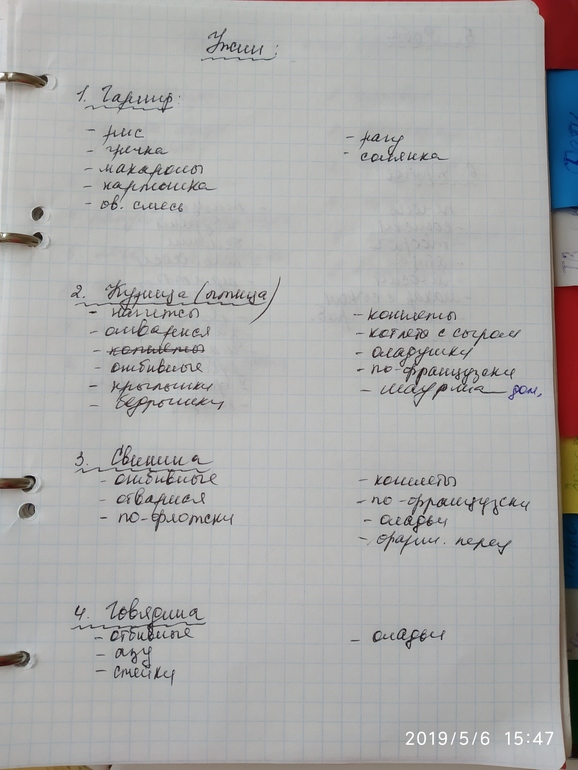 Ужин:
1. Гарнир:
- рис
- гречка
- макароны
- картошка
- ов. смесь
- рагу
- солянка
2. Курица (птица)
- нагетсы
- отварная
- котлеты
- отбивные
- крылышки
- бедрышки
- котлеты
- котлета с сыром
- оладушки
- по-французски
- шаурма дом.
3. Свинина
- отбивные
- отварная
- по-флотски
- котлеты
- по-французски
- оладьи
- фарш. перец
4. Говядина
- отбивные
- азу
- стейки
- оладьи
2019/5/6 15:47